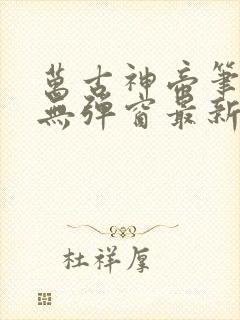 萬古神帝筆
無彈窗最新
杜祥厚